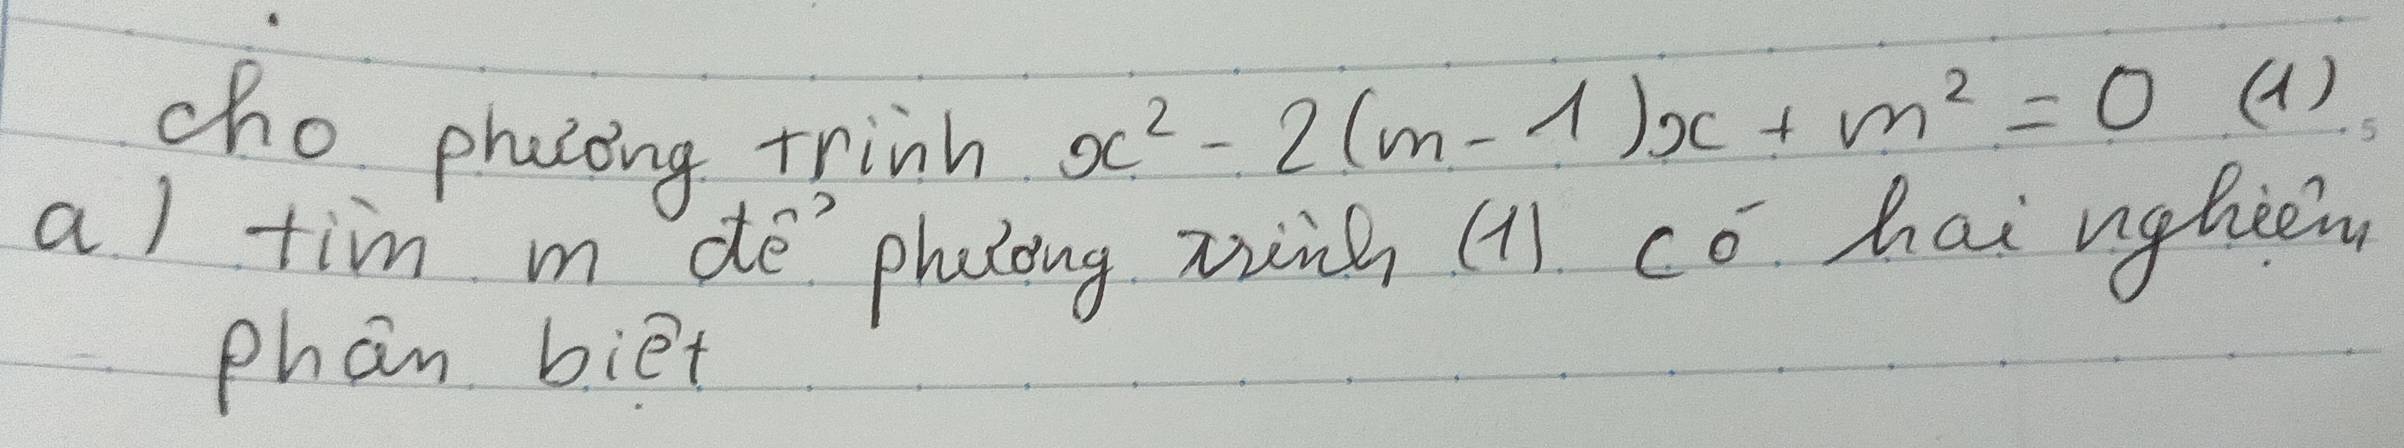 cho phương trình x² - 2(m - 1)x + m² = 0 (1)
a) tìm m để phương trình (1) có hai nghiệm
phân biệt